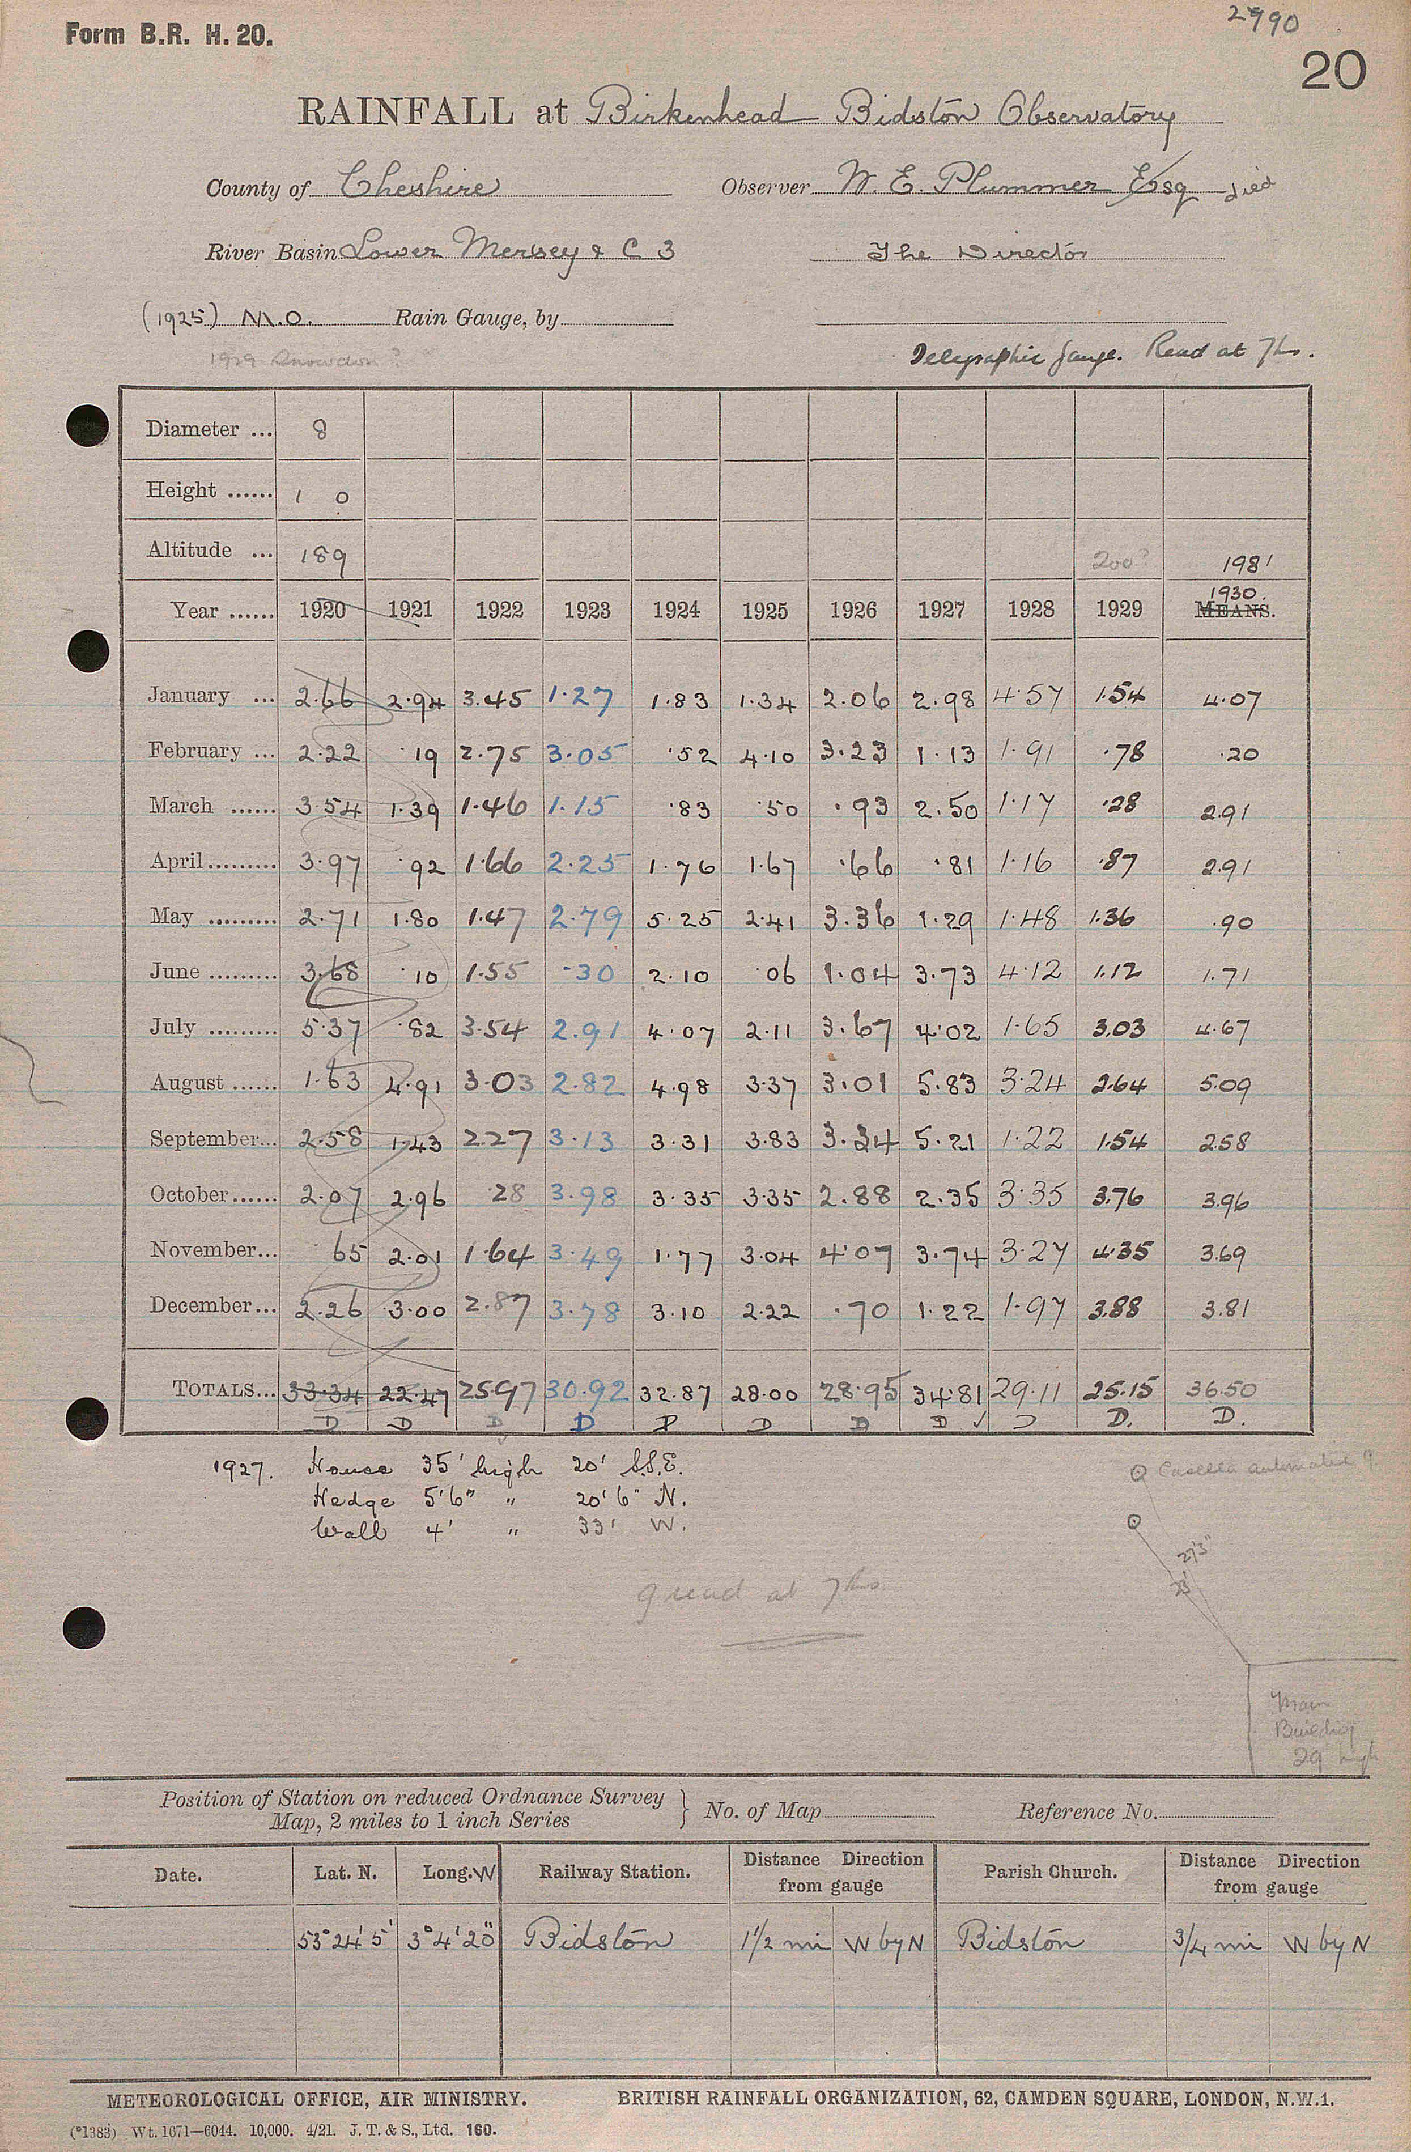 2990
Form B.R. H. 20.
20
RAINFALL at Birkenhead Bidston Observatory
County of Cheshire Observer W. E. Plummer Esq died
River Basin Lower Mersey & C 3 The Director
(1925) M.O. Rain Gauge, by
1929 Snowdon ?
Telegraphic gauge. Read at 7hs.
Diameter ... 8
Height ...... 1 0
Altitude ... 189 200? 198'
Year ...... 1920 1921 1922 1923 1924 1925 1926 1927 1928 1929 1930. MEANS.
January ... 2.66 2.94 3.45 1.27 1.83 1.34 2.06 2.98 4.57 1.54 4.07
February ... 2.22 .19 2.75 3.05 .52 4.10 3.23 1.13 1.91 .78 .20
March ...... 3.54 1.39 1.46 1.15 .83 .50 .93 2.50 1.17 .28 2.91
April ......... 3.97 .92 1.66 2.25 1.76 1.67 .66 .81 1.16 .87 2.91
May ......... 2.71 1.80 1.47 2.79 5.25 2.41 3.36 1.29 1.48 1.36 .90
June ......... 3.68 .10 1.55 .30 2.10 .06 1.04 3.73 4.12 1.12 1.71
July ......... 5.37 .82 3.54 2.91 4.07 2.11 3.67 4.02 1.65 3.03 4.67
August ...... 1.63 4.91 3.03 2.82 4.98 3.37 3.01 5.83 3.24 2.64 5.09
September... 2.58 1.43 2.27 3.13 3.31 3.83 3.34 5.21 1.22 1.54 2.58
October ...... 2.07 2.96 .28 3.98 3.35 3.35 2.88 2.35 3.35 3.76 3.96
November... .65 2.01 1.64 3.49 1.77 3.04 4.07 3.74 3.27 4.35 3.69
December... 2.26 3.00 2.87 3.78 3.10 2.22 .70 1.22 1.97 3.88 3.81
TOTALS... 33.34 22.47 25.97 30.92 32.87 28.00 28.95 34.81 29.11 25.15 36.50
D D D D D D D D ✓ D D. D.
1927. House 35' high 20' S.S.E.
Hedge 5'6" " 20'6" N.
Wall 4' " 33' W.
Casella automatic
27'3"
23'
9 read at 7hs
Main
Building
29 high
Position of Station on reduced Ordnance Survey
Map, 2 miles to 1 inch Series } No. of Map Reference No.
Date. Lat. N. Long. W Railway Station. Distance Direction from gauge Parish Church. Distance Direction from gauge
53°24'5' 3°4'20" Bidston 1½ mi W by N Bidston ¾ mi W by N
METEOROLOGICAL OFFICE, AIR MINISTRY. BRITISH RAINFALL ORGANIZATION, 62, CAMDEN SQUARE, LONDON, N.W.1.
(*1383) Wt. 1671—6044. 10,000. 4/21. J. T. & S., Ltd. 160.